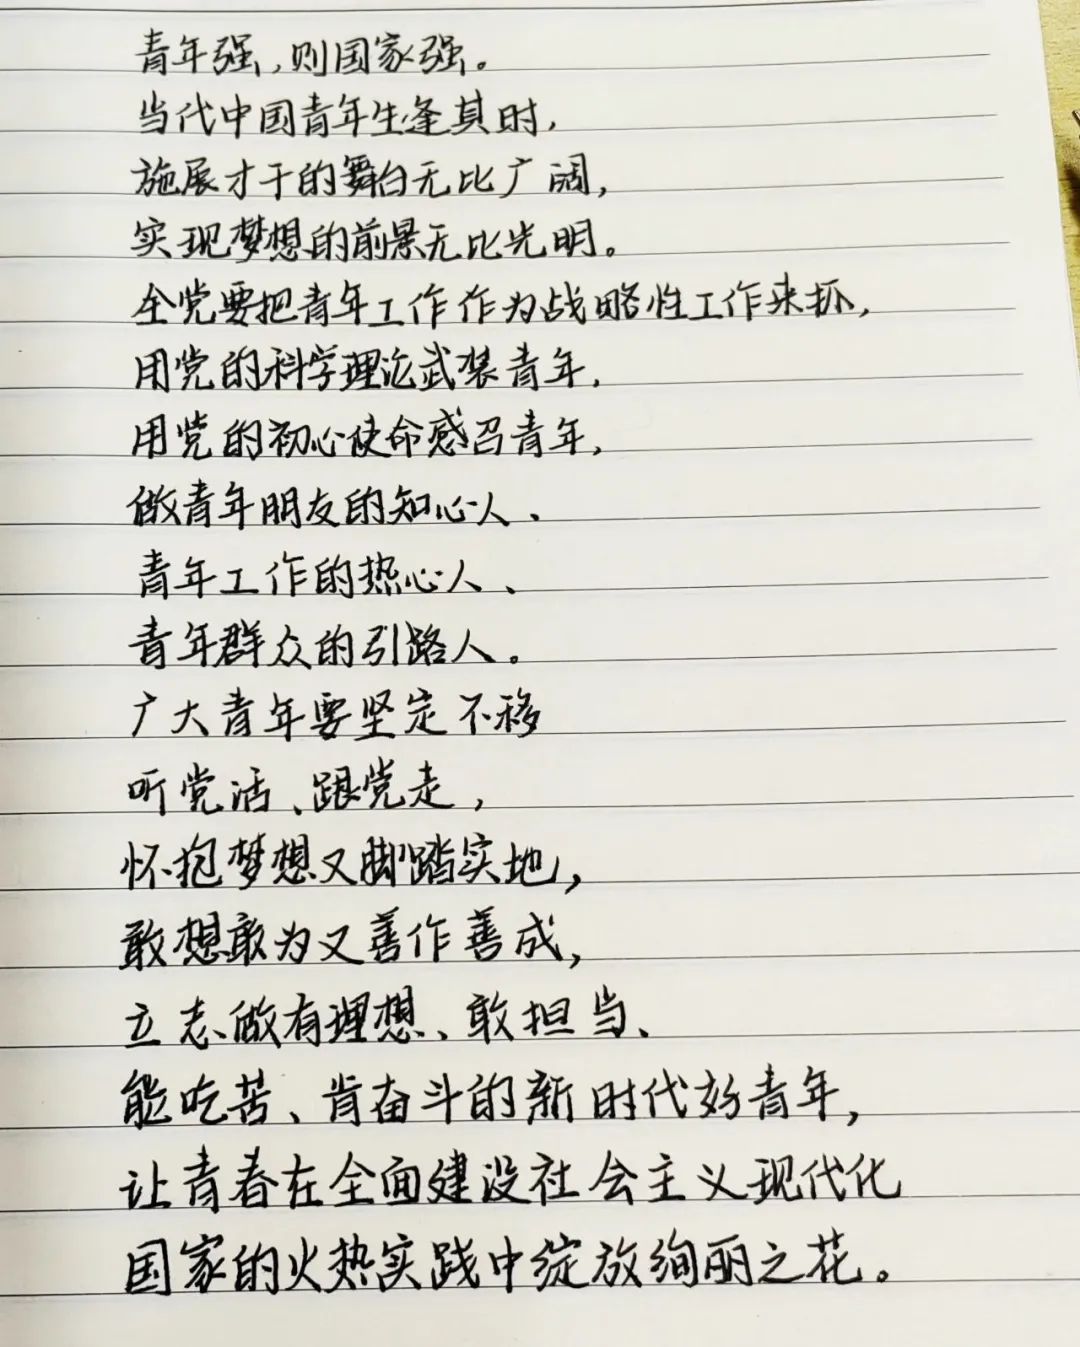 青年强,则国家强。
当代中国青年生逢其时,
施展才干的舞台无比广阔,
实现梦想的前景无比光明。
全党要把青年工作作为战略性工作来抓,
用党的科学理论武装青年,
用党的初心使命感召青年,
做青年朋友的知心人、
青年工作的热心人、
青年群众的引路人。
广大青年要坚定不移
听党话、跟党走,
怀抱梦想又脚踏实地,
敢想敢为又善作善成,
立志做有理想、敢担当、
能吃苦、肯奋斗的新时代好青年,
让青春在全面建设社会主义现代化
国家的火热实践中绽放绚丽之花。